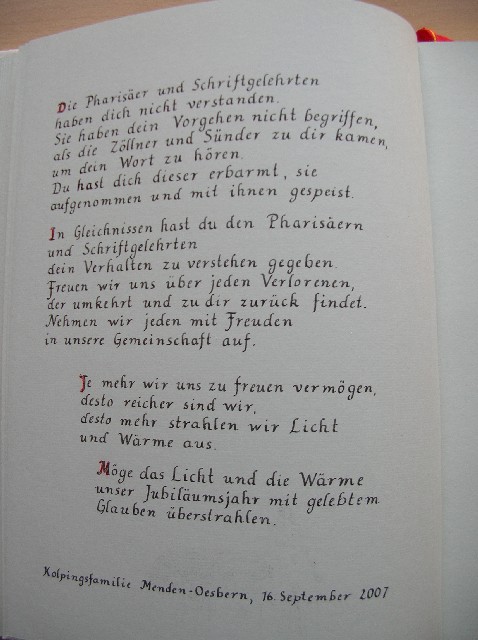 Die Pharisäer und Schriftgelehrten
haben dich nicht verstanden.
Sie haben dein Vorgehen nicht begriffen,
als die Zöllner und Sünder zu dir kamen,
um dein Wort zu hören.
Du hast dich dieser erbarmt, sie
aufgenommen und mit ihnen gespeist.
In Gleichnissen hast du den Pharisäern
und Schriftgelehrten
dein Verhalten zu verstehen gegeben.
Freuen wir uns über jeden Verlorenen,
der umkehrt und zu dir zurück findet.
Nehmen wir jeden mit Freuden
in unsere Gemeinschaft auf.
Je mehr wir uns zu freuen vermögen,
desto reicher sind wir,
desto mehr strahlen wir Licht
und Wärme aus.
Möge das Licht und die Wärme
unser Jubiläumsjahr mit gelebtem
Glauben überstrahlen.
Kolpingsfamilie Menden-Oesbern, 16. September 2007